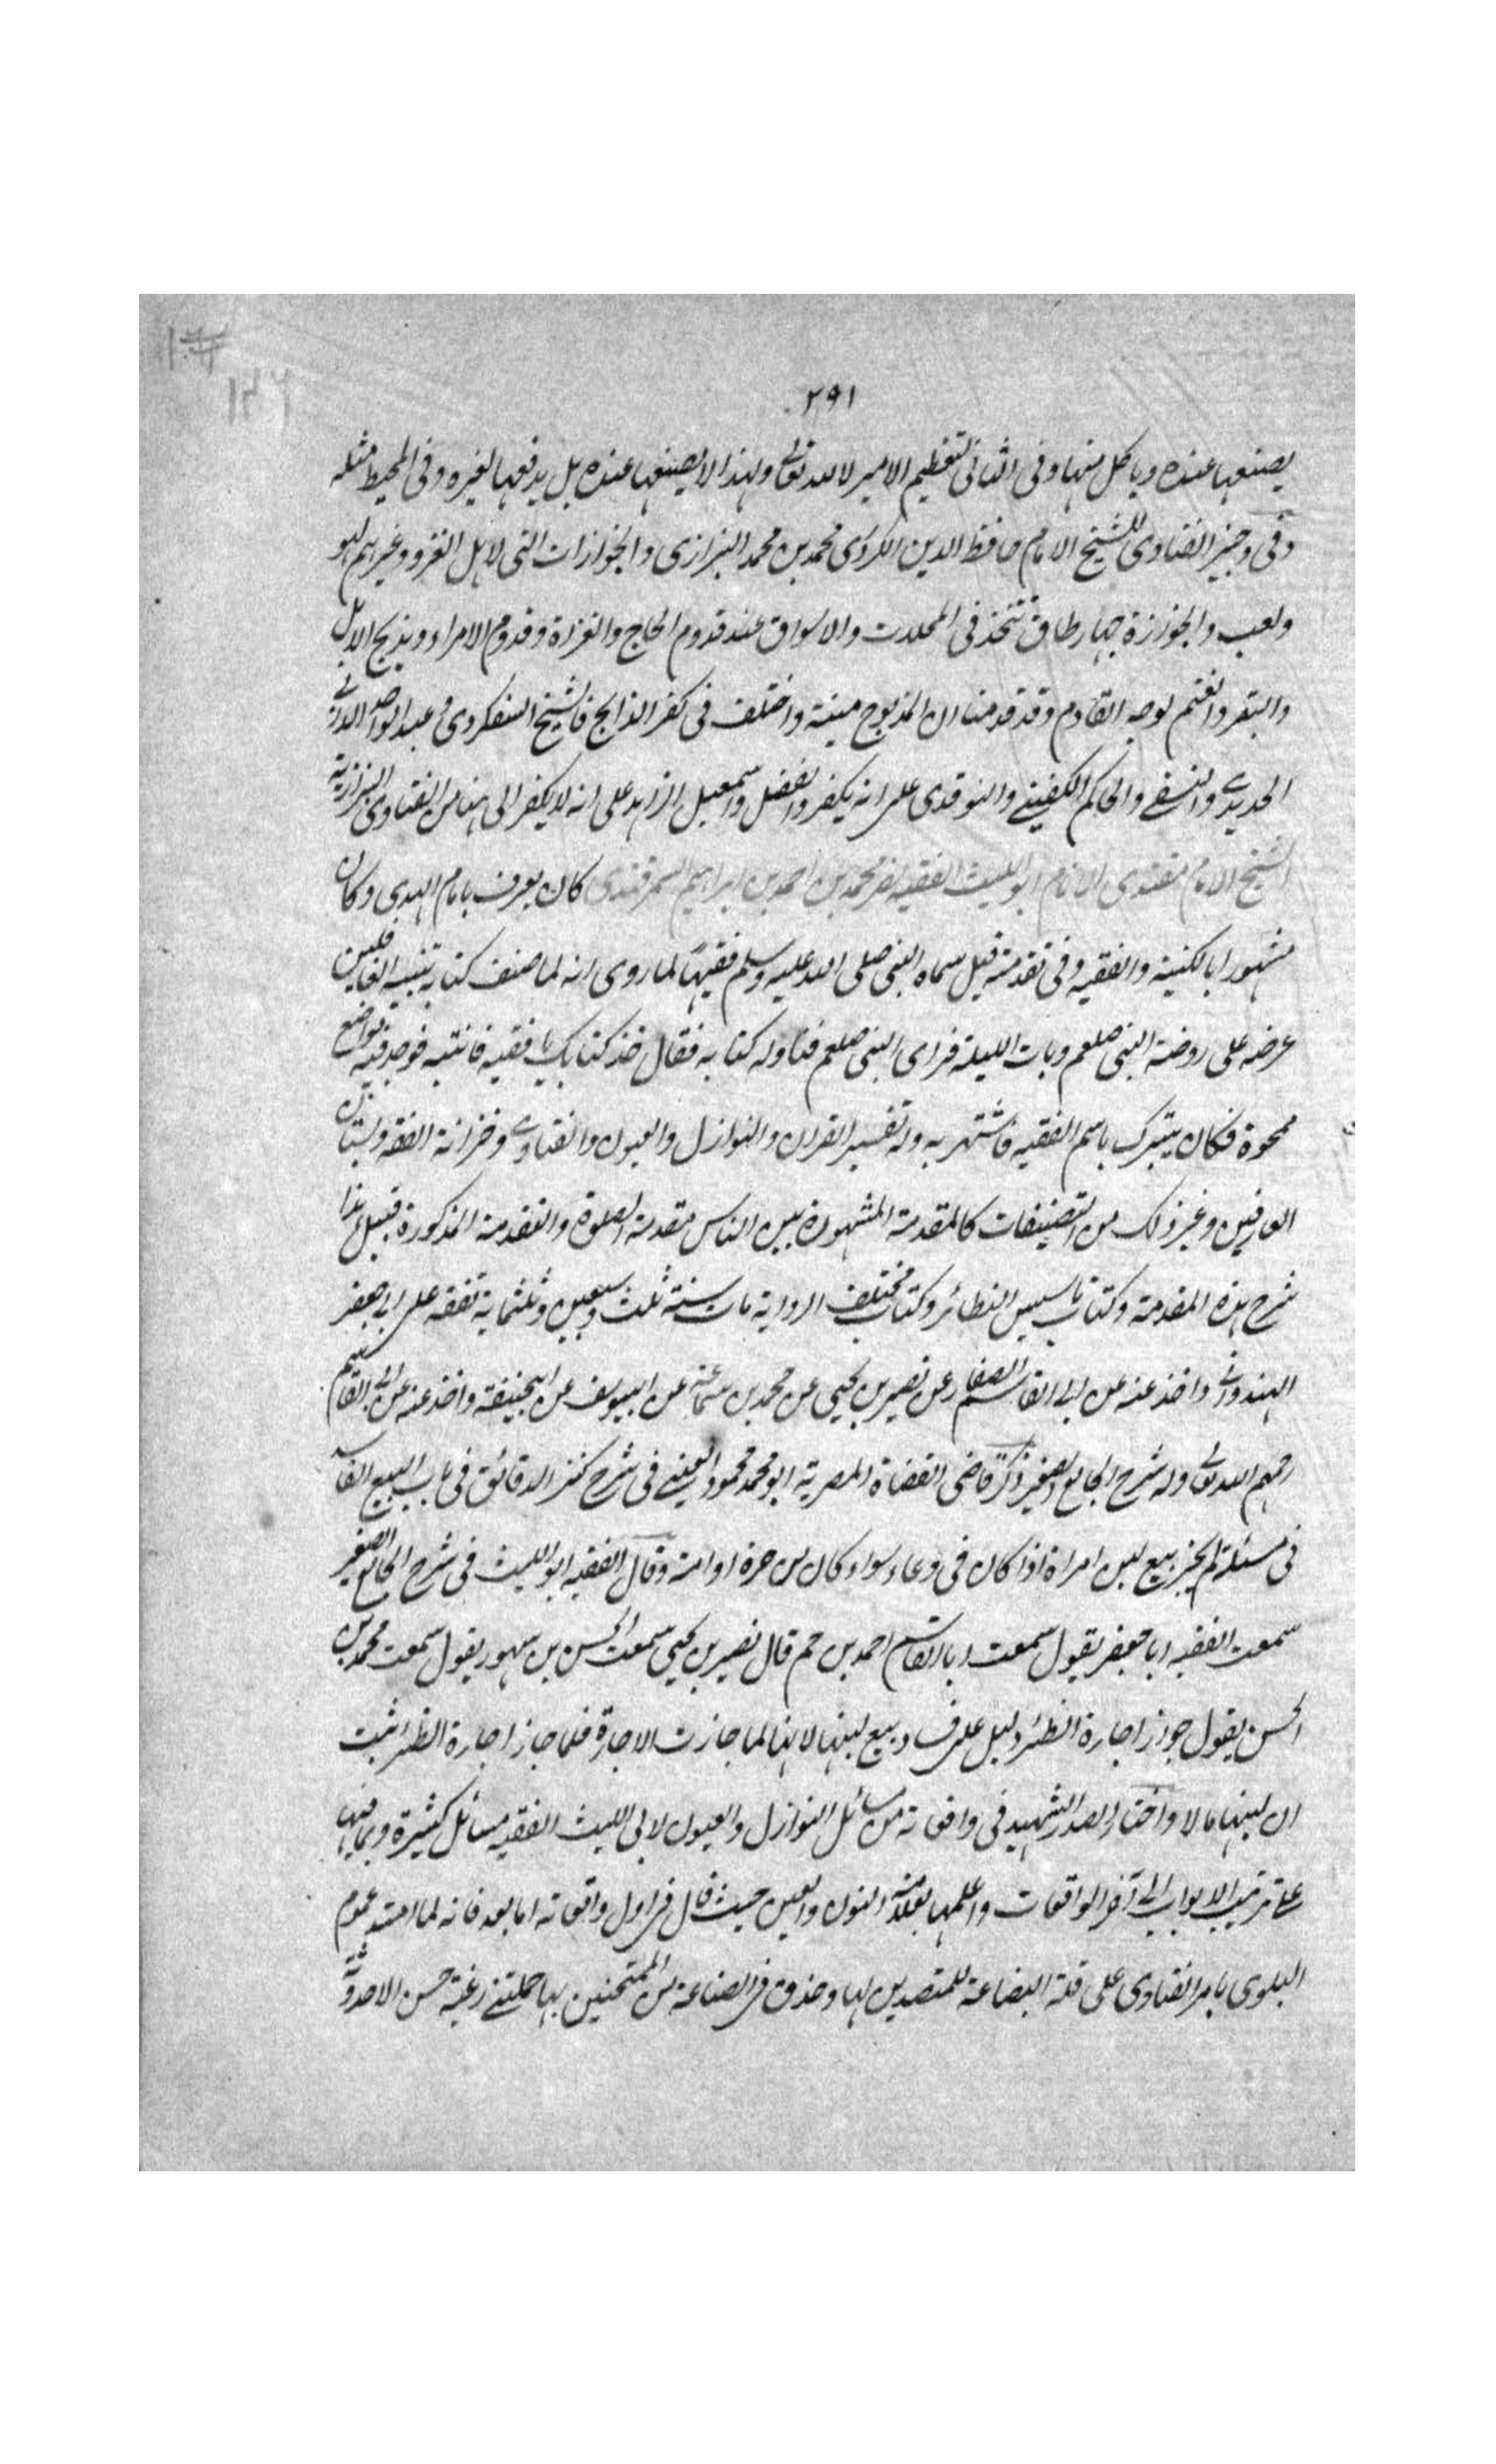 ٢٩١
يصنعها عنده وياكل منها وفى الثانى لتعظيم الامير لا لله تعالى ولهذا لا يصنعها عنده بل يدفعها لغيره وفى المحيط مثله
وفى وجيز الفتاوى للشيخ الامام حافظ الدين الكردرى محمد بن محمد البزازى والجوازات التى لاهل الغزو وغيرهم لهو
ولعب والجوززة چهار طاق تتخذ فى المحلات والاسواق عند قدوم الحاج والغزاة وقدوم الامراء ويذبح الابل
والبقر والغنم لوجه القادم وقد قدمنا ان المذبوح ميتة واختلف فى كفر الذابح فالشيخ السفكردى وعبد الواحد
الحديدى والنسفى والحاكم الكفينى والنوقدى على انه يكفر والفضل واسمعيل الزاهد على انه لا يكفر الى هنا من الفتاوى البزازية
الشيخ الامام مقتدى الانام ابو الليث الفقيه نصر محمد بن احمد بن ابراهيم السمرقندى كان يعرف بامام الهدى وكان
مشهورا بالكنية والفقيه وفى تقدمته قيل سماه النبى صلى الله عليه وسلم فقيها لما روى انه لما صنف كتابه تنبيه الغافلين
عرضه على روضة النبى صلعم وبات الليلة فراى النبى صلعم فناوله كتابه فقال خذ كتابك يا فقيه فانتبه فوجد فيه مواضع
ممحوة فكان يتبرك باسم الفقيه فاشتهر به وله تفسير القران والنوازل والعيون والفتاوى وخزانة الفقه وبستان
العارفين وغير ذلك من التصنيفات كالمقدمة المشهورة بين الناس مقدمة الصلوة والتقدمة المذكورة قبيل هذا
شرح هذه المقدمة وكتاب تاسيس النظائر وكتاب مختلف الرواية مات سنة ثلث وسبعين وثلثماية تفقه على ابى جعفر
الهندوانى واخذ عنه عن ابى القاسم الصفار عن نصير بن يحيى عن محمد بن سماعة عن ابى يوسف عن ابى حنيفة واخذ عنه عن ابى القاسم
رحمهم الله تعالى وله شرح الجامع الصغير ذكر قاضى القضاة المصرية ابو محمد محمود العينى فى شرح كنز الدقائق فى باب البيع الفاسد
فى مسئلة لم يجز بيع لبن امراة اذا كان فى وعاء سواء كان من حرة او امة وقال الفقيه ابو الليث فى شرح الجامع الصغير
سمعت الفقيه ابا جعفر يقول سمعت ابا القاسم احمد بن حم قال نصير بن يحيى سمعت الحسن بن سهور يقول سمعت محمد بن
الحسن يقول جواز اجارة الظئر دليل على فساد بيع لبنها لانها لما جازت الاجارة فلما جاز اجارة الظئر ثبت
ان لبنها مالا واختار الصدر الشهيد فى واقعاته من مسائل النوازل والعيون لابى الليث الفقيه مسائل كثيرة
على ترتيب الابواب الى آخر الواقعات واعلمها بعلامة النون والعين حيث قال فى اول واقعاته اما بعد فانه لما امتد عموم
البلوى بامر الفتاوى على قلة البضاعة للمتصدين لها وحذق فى الصناعة من الممتحنين بها حملتنى رغبة حسن الاحدوثة